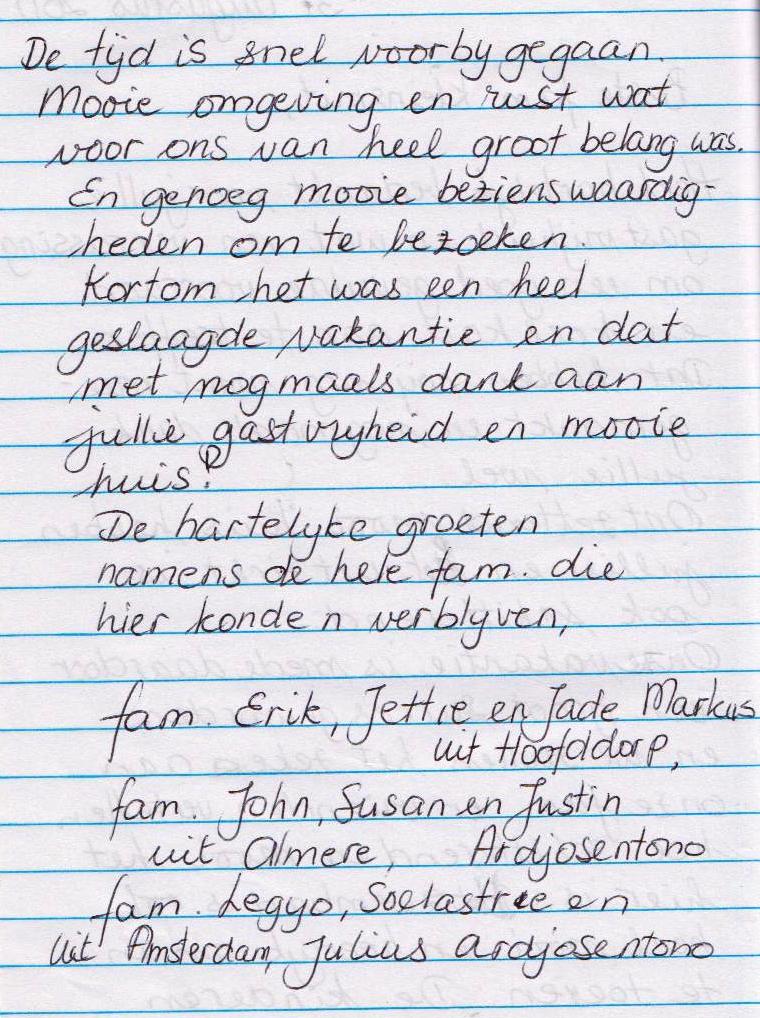 De tijd is snel voorby gegaan.
Mooie omgeving en rust wat
voor ons van heel groot belang was.
En genoeg mooie bezienswaardig-
heden om te bezoeken.
Kortom het was een heel
geslaagde vakantie en dat
met nogmaals dank aan
jullie gastvryheid en mooie
huis!
De hartelyke groeten
namens de hele fam. die
hier konden verblyven,
fam. Erik, Jettie en Jade Markus
uit Hoofddorp,
fam. John, Susan en Justin
uit Almere, Ardjosentono
fam. Legyo, Soelastree en
uit Amsterdam, Julius Ardjosentono